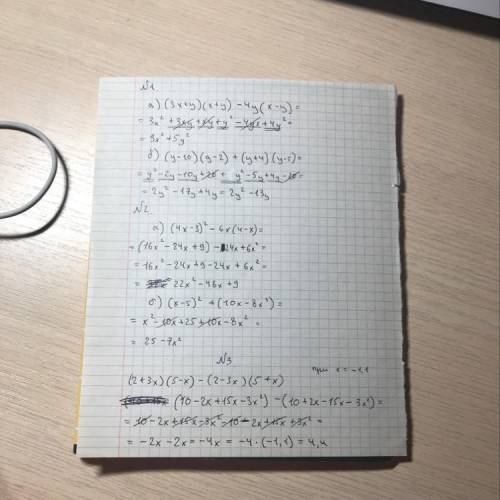 №1.
а) (3x+y)(x+y) -4y(x-y)=
= 3x² +3xy+xy+y² -4yx+4y²=
= 3x²+5y²
б) (y-10)(y-2) + (y+4)(y-5)=
= y²-2y-10y+20+ y²-5y+4y-20=
= 2y²-17y+4y= 2y²-13y
№2.
а) (4x-3)² -6x(4-x)=
= (16x²-24x+9) -24x+6x²=
= 16x²-24x+9-24x+6x²=
= 22x²-48x+9
б) (x-5)² +(10x-8x²)=
= x²-10x+25+10x-8x² =
= 25-7x²
№3
при x=-1,1
(2+3x)(5-x) -(2-3x)(5+x)
(10-2x+15x-3x²) -(10+2x-15x-3x²)=
= 10-2x+15x-3x²-10-2x+15x+3x² =
= -2x-2x=-4x= -4·(-1,1)= 4,4